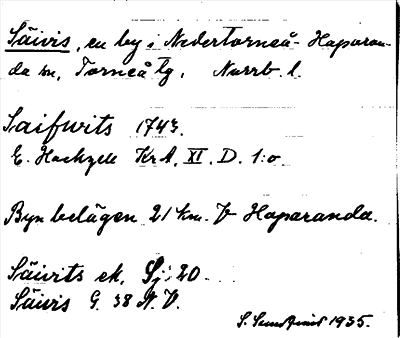 Säivis, en by i Nedertorneå-Haparan-
da sn, Torneå tg. Norrb. l.
Saifwits 1743.
E. Hackzell KrA. XI. D. 1:o
Byn belägen 21 km. V Haparanda.
Säivits ek. Sj: 20
Säivis G. 38 N. V.
S. 1935.